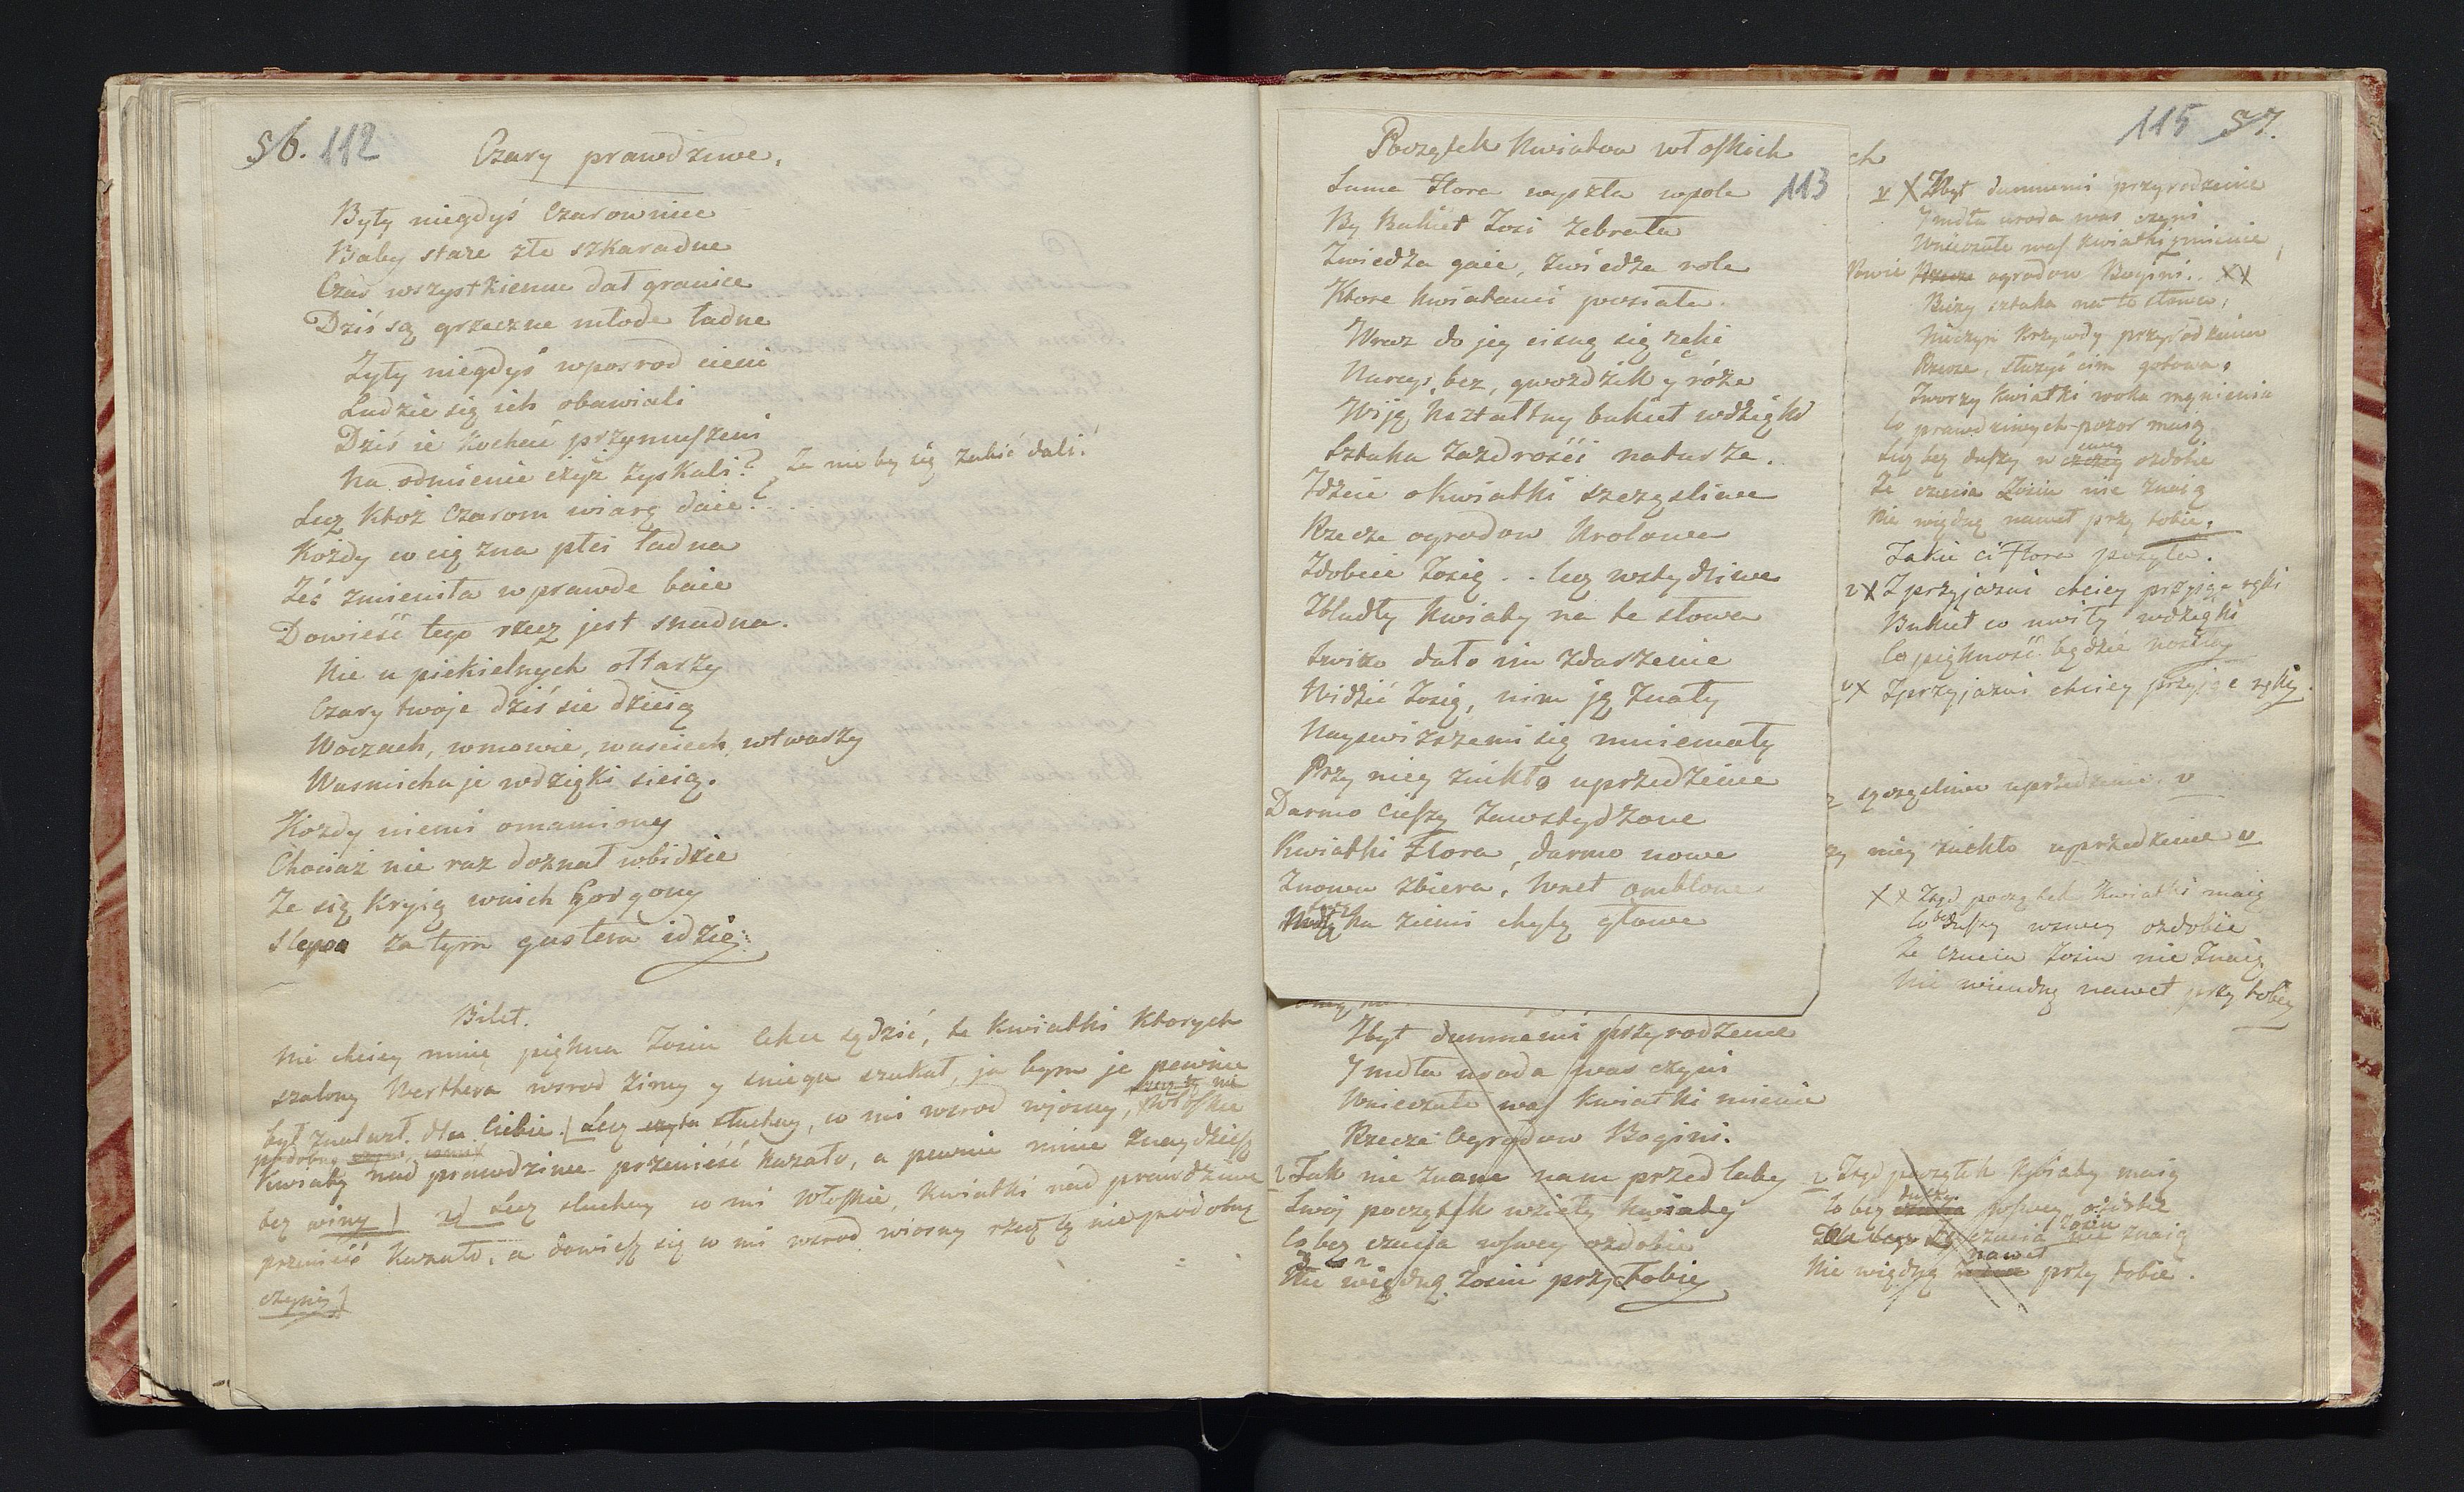 56. 112
Czary prawdziwe.
Były niegdyś Czarownice
Baby stare złe szkaradne
Czas wszystkiemu dał granice
Dziś są grzeczne młode ładne
Żyły niegdyś wposrod cieni
Ludzie się ich obawiali
Dziś ie kochać przymuszeni
Na odmienie iżyż zyskali? Ze nie by się zabić dali!
Lecz ktoż Czarom wiarę daie? . .
Kożdy co cię zna płci ładna
Żeś zmieniła wprawdę baie
Dowieść tego rzecz jest snadna.
Nie u piekielnych ołtarzy
Czary twoje dziś sie dzieią
Woczach, wmowie, wusciech, wtwarzy
Wusmiechu je wdzięki sieią.
Kożdy niemi omamiony
Chociaż nie raz doznał wbidzie
Ze się kryią wnich Gorgony
Slepo za tym gustem idzie.
Bilet.
Nie chciey mnię piękna Zosiu lekce sądzić, te kwiatki ktorych
szalony Werthera wsrod zimy y sniegu szukał, ja bym je pewnie
był znalazł dla Ciebie. Lecz słuchay, co mi wsrod wiosny, Włoskie
podobną
kwiaty nad prawdziwe przenieść kazało, a pewnie mnie znaydziesz
bez winy) Lecz słuchay co mi Włoskie, kwiatki nad prawdziwe
przenieść kazało, a dowiesz się co mi wsrod wiosny rzecz tę niepodobną
czyni)
Początek Kwiatow włoskich
113
Sama Flora wyszła wpole
By Bukiet Zosi zebrała
Zwiedza gaie, zwiedza role
Ktore kwiatami posiała.
Wraz do jey cisną się ręki
Narcys, bez, gwozdzik y róże
Wiją kształtny bukiet wdzięki
Sztuka zazdrości naturze.
Idźcie o kwiatki szczęsliwe
Rzecze ogrodow Krolowa
Zdobcie Zosię . . lecz wstydliwe
Zbladły kwiaty na te słowa
Swiżo dało im zdarzenie
Widzieć Zosię, nim ją znały
Nayswiższemi się mniemały
Przy niey znikło uprzedzenie
Darmo cieszy zawstydzone
Kwiatki Flora, darmo nowe
Znowu zbiera, wnet omdlone
Na ziemi chylą głowe
Zbyt dumnemi przyrodzenie
Y mdła uroda was czyni
Wnieczułe was kwiatki mienie
Rzecze Ogrodow Bogini.
Tak nie znane nam przed laty
Swój początek wzięły kwiaty
Co bez czucia wswey ozdobie
Nie więdną Zosiu przy tobie
115 57.
ch
v X Zbyt dumnemi przyrodzenie
Y mdła uroda was czyni
Wnieczułe was kwiatki zmienie
Powie Rzecze ogrodow Bogini. XX
Bieży sztuka na te słowa,
Nieczyń krzywdy przyrodzeniu
Rzecze, służyć cim gotowa,
Tworzy kwiatki woka mgnieniu
Co prawdziwych pozor maią
Lecz bez duszy w swey ozdobie
Ze czucia Zosiu nie znaią
Nie więdną nawet przy tobie.
Jakie ci Flora posyła.
v X Zprzyjazni chciey przyjąc ręki
Bukiet co uwiły wdzięki
Co piękność będzie nosiła
v X Zprzyjazni chciey przyjąc ręki.
szczęsliwe uprzedzenie. v
zy niey znikło uprzedzenie v
X X Ztąd początek Kwiatki maią
Co bez duszy wswey ozdobie
Ze czucia Zosiu nie znaią
Nie wiendną nawet przy tobie
v Ztąd początek Kwiaty maią
Co bez duszy wswey ozdobie
czucia Zosiu nie znaią
Nie więdną nawet przy tobie.